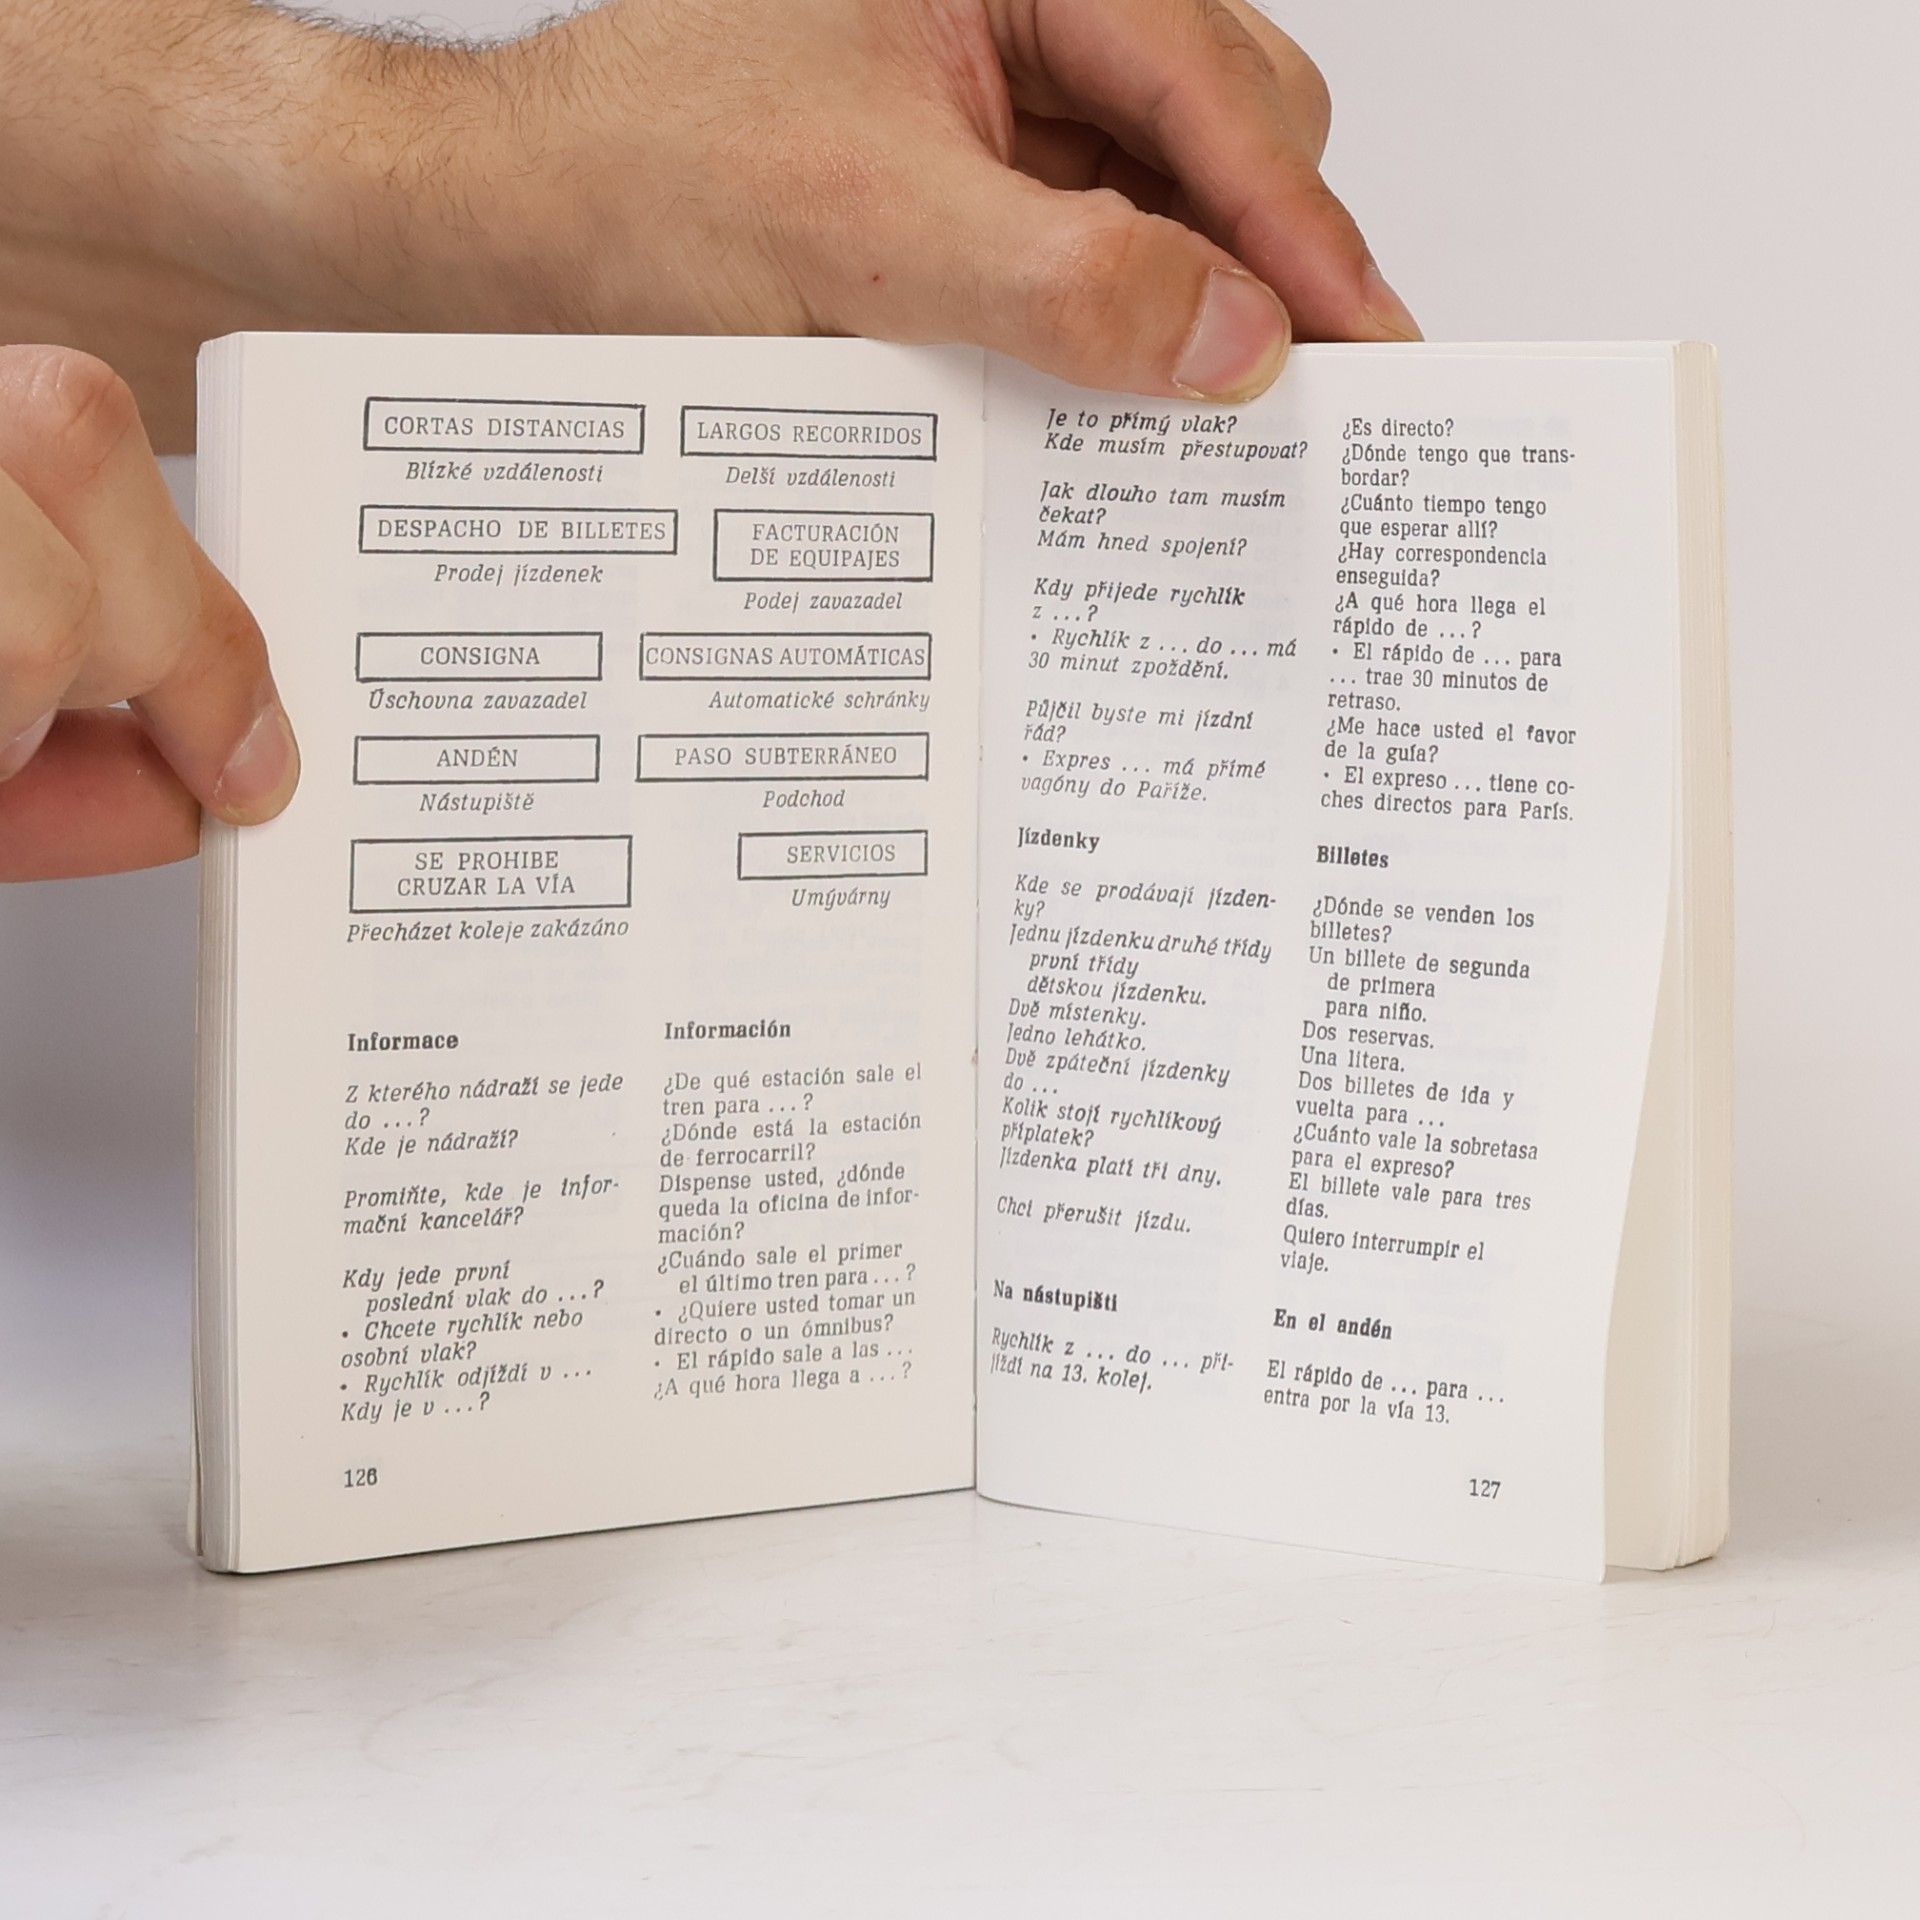 CORTAS DISTANCIAS
Blízké vzdálenosti
LARGOS RECORRIDOS
Delší vzdálenosti
DESPACHO DE BILLETES
Prodej jízdenek
FACTURACIÓN
DE EQUIPAJES
Podej zavazadel
CONSIGNA
Úschovna zavazadel
CONSIGNAS AUTOMÁTICAS
Automatické schránky
ANDÉN
Nástupiště
PASO SUBTERRÁNEO
Podchod
SE PROHIBE
CRUZAR LA VÍA
Přecházet koleje zakázáno
SERVICIOS
Umývárny
Informace
Z kterého nádraží se jede
do ...?
Kde je nádraží?
Promiňte, kde je infor-
mační kancelář?
Kdy jede první
poslední vlak do ...?
• Chcete rychlík nebo
osobní vlak?
• Rychlík odjíždí v ...
Kdy je v ...?
126
Información
¿De qué estación sale el
tren para ...?
¿Dónde está la estación
de ferrocarril?
Dispense usted, ¿dónde
queda la oficina de infor-
mación?
¿Cuándo sale el primer
el último tren para ...?
• ¿Quiere usted tomar un
directo o un ómnibus?
• El rápido sale a las ...
¿A qué hora llega a ...?
Je to přímý vlak?
Kde musím přestupovat?
Jak dlouho tam musím
čekat?
Mám hned spojení?
Kdy přijede rychlík
z ...?
• Rychlík z ... do ... má
30 minut zpoždění.
Půjčil byste mi jízdní
řád?
• Expres ... má přímé
vagóny do Paříže.
Jízdenky
Kde se prodávají jízden-
ky?
Jednu jízdenku druhé třídy
první třídy
dětskou jízdenku.
Dvě místenky.
Jedno lehátko.
Dvě zpáteční jízdenky
do ...
Kolik stojí rychlíkový
příplatek?
Jízdenka platí tři dny.
Chci přerušit jízdu.
Na nástupišti
Rychlík z ... do ... při-
jíždí na 13. kolej.
¿Es directo?
¿Dónde tengo que trans-
bordar?
¿Cuánto tiempo tengo
que esperar allí?
¿Hay correspondencia
enseguida?
¿A qué hora llega el
rápido de ...?
• El rápido de ... para
... trae 30 minutos de
retraso.
¿Me hace usted el favor
de la guía?
• El expreso ... tiene co-
ches directos para París.
Billetes
¿Dónde se venden los
billetes?
Un billete de segunda
de primera
para niño.
Dos reservas.
Una litera.
Dos billetes de ida y
vuelta para ...
¿Cuánto vale la sobretasa
para el expreso?
El billete vale para tres
días.
Quiero interrumpir el
viaje.
En el andén
El rápido de ... para ...
entra por la vía 13.
127